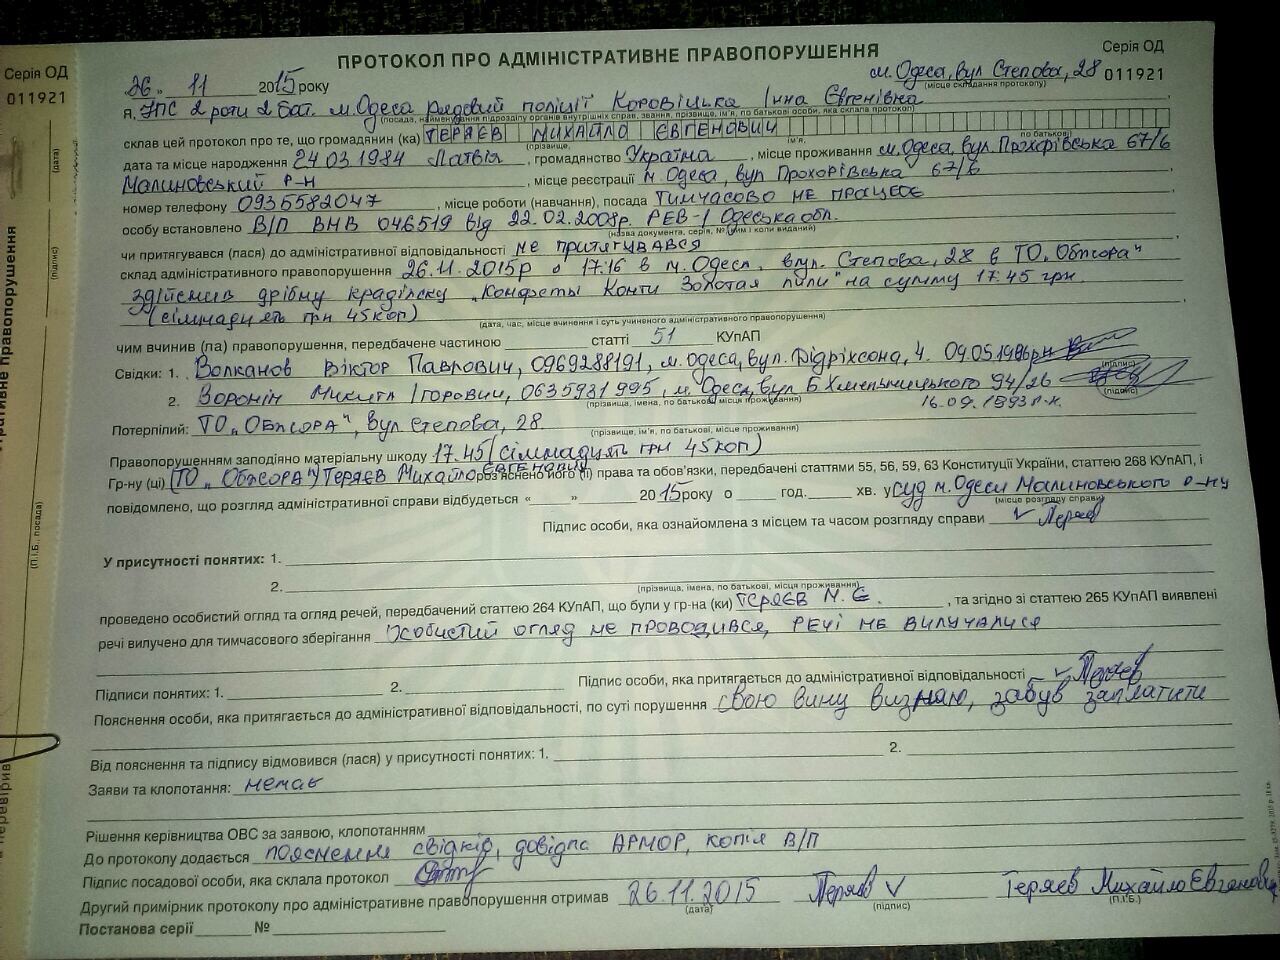 ПРОТОКОЛ ПРО АДМІНІСТРАТИВНЕ ПРАВОПОРУШЕННЯ
Серія ОД
011921
Серія ОД
011921
26 " 11 2015 року
м. Одеса, вул Степова, 28
(місце складання протоколу)
Я, УПС 2 роти 2 бат. м. Одеса рядовий поліції Коровіцька Інна Євгенівна
(посада, найменування підрозділу органів внутрішніх справ, звання, прізвище, ім'я, по батькові особи, яка склала протокол)
склав цей протокол про те, що громадянин (ка) ТЕРЯЄВ МИХАЙЛО ЄВГЕНОВИЧ
(прізвище, ім'я, по батькові)
дата та місце народження 24 03 1984 Латвія, громадянство Україна, місце проживання м. Одеса, вул. Прохорівська 67/6
Малиновський р-н, місце реєстрації м. Одеса, вул Прохорівська 67/6
номер телефону 0935582047, місце роботи (навчання), посада тимчасово не працює
особу встановлено В/П ВНВ 046519 від 22.02.2008р. РЕВ-1 Одеська обл.
(назва документа, серія, № (ким і коли виданий)
чи притягувався (лася) до адміністративної відповідальності не притягувався
склад адміністративного правопорушення 26.11.2015р о 17:16 в м. Одеса, вул. Степова, 28 в ТО "Обжора"
здійснив дрібну крадіжку "Конфеты Конти Золотая лили" на сумму 17.45 грн.
(сімнадцять грн 45 коп)
(дата, час, місце вчинення і суть учиненого адміністративного правопорушення)
чим вчинив (ла) правопорушення, передбачене частиною статті 51 КУпАП
Свідки: 1. Волканов Віктор Павлович, 0969288191, м. Одеса, вул. Фідріхсона, 4. 09.05.1986рн
(підпис)
2. Воронін Микита Ігорович, 0635931995, м. Одеса, вул Б Хмельницького 94/26
(прізвища, імена, по батькові, місця проживання)
(підпис)
16.09.1993 р.н.
Потерпілий: ТО "Обжора", вул Степова, 28
(прізвище, ім'я, по батькові, місце проживання)
Правопорушенням заподіяно матеріальну шкоду 17.45 (сімнадцять грн 45 коп)
Гр-ну (ці) (ТО "Обжора") Теряєв Михайло Євгенович роз'яснено його (її) права та обов'язки, передбачені статтями 55, 56, 59, 63 Конституції України, статтею 268 КУпАП, і
повідомлено, що розгляд адміністративної справи відбудеться « » 2015 року о год. хв. у суд м. Одеси Малиновського р-ну
(місце розгляду справи)
Підпис особи, яка ознайомлена з місцем та часом розгляду справи Теряєв
У присутності понятих: 1.
2.
(прізвища, імена, по батькові, місця проживання)
проведено особистий огляд та огляд речей, передбачений статтею 264 КУпАП, що були у гр-на (ки) Теряєв М. Є., та згідно зі статтею 265 КУпАП виявлені
речі вилучено для тимчасового зберігання Особистий огляд не проводився, речі не вилучалися
Підписи понятих: 1. 2. Підпис особи, яка притягається до адміністративної відповідальності Теряєв
Пояснення особи, яка притягається до адміністративної відповідальності, по суті порушення свою вину визнаю, забув заплатити
Від пояснення та підпису відмовився (лася) у присутності понятих: 1. 2.
Заяви та клопотання: немає
Рішення керівництва ОВС за заявою, клопотанням
До протоколу додається пояснення свідків, довідка АРМОР, копія В/П
Підпис посадової особи, яка склала протокол
Другий примірник протоколу про адміністративне правопорушення отримав 26.11.2015 Теряєв Теряєв Михайло Євгенович
(дата) (підпис) (П.І.Б.)
Постанова серії №
(дата)
(підпис)
(П.І.Б., посада)
перевірив